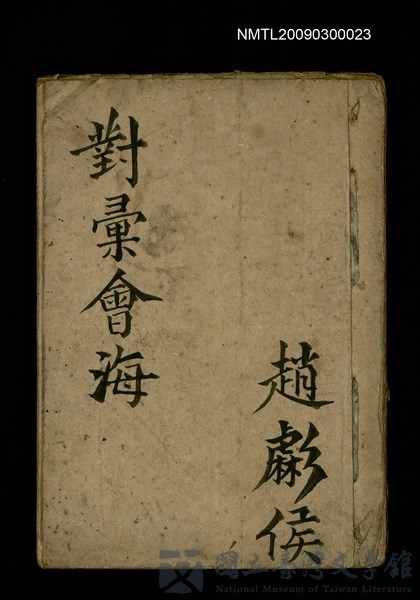 NMTL20090300023
對彙會海
趙劇侯
國立臺灣文學館
National Museum of Taiwan Literature